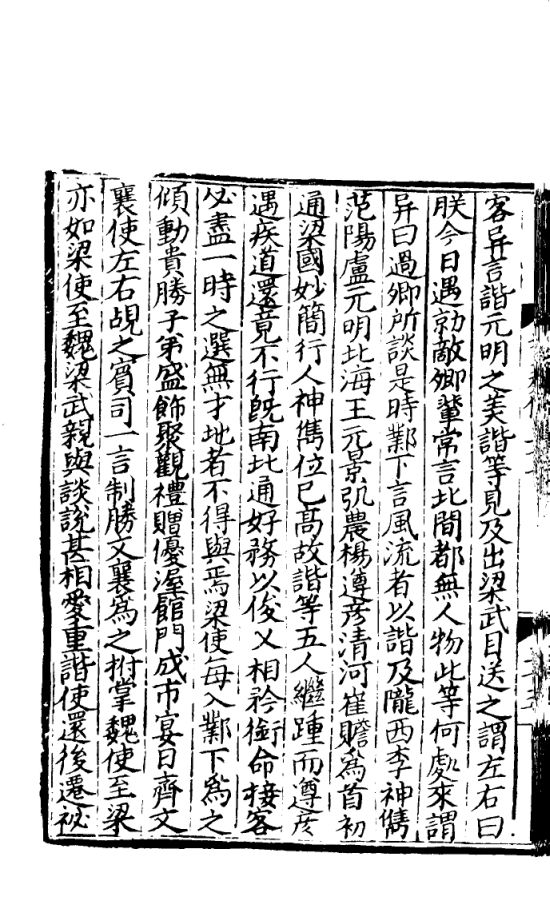 客异言諧元明之美諧等見及出梁武目送之謂左右曰
朕今日遇勍敵卿軰常言北間都無人物此等何處來謂
异曰過卿所談是時鄴下言風流者以諧及隴西李神儁
范陽盧元明北海王元景弘農楊遵彥清河崔贍爲首初
通梁國妙簡行人神儁位已髙故諧等五人繼踵而遵彦
遇疾道還竟不行旣南北通好務以俊乂相矜銜命接客
必盡一時之選無才地者不得與焉梁使每入鄴下爲之
傾動貴勝子弟盛飾聚觀禮贈優渥館門成市宴日齊文
襄使左右覘之賓司一言制勝文襄爲之拊掌魏使至梁
亦如梁使至魏梁武親與談說甚相愛重諧使還後遷祕